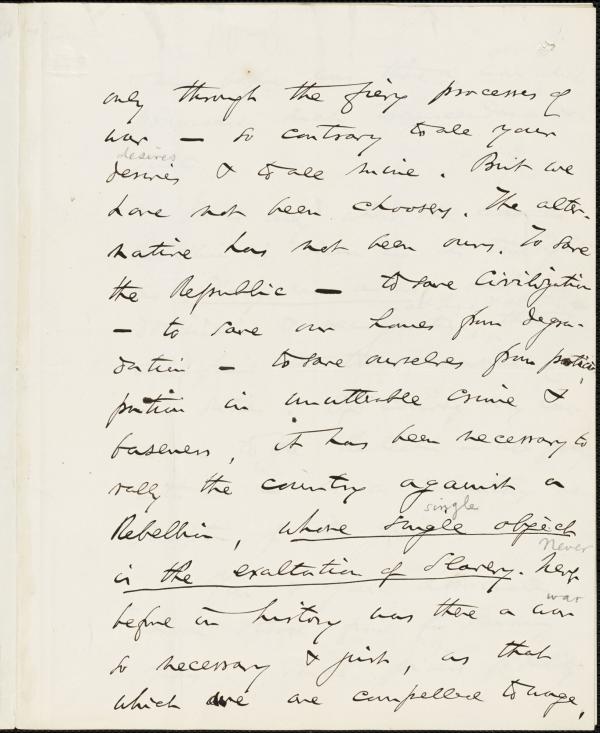 only through the fiery processes of
war — so contrary to all your
desires
desires & to all mine. But we
have not been choosers. The alter-
native has not been ours. To save
the Republic — to save Civilization
— to save our homes from degra-
dation — to save ourselves from partici
pation in unutterable crime &
baseness, it has been necessary to
rally the country against a
single
Rebellion, whose single object
Never
is the exaltation of Slavery. Never
war
before in history was there a war
so necessary & just, as that
which we are compelled to wage,